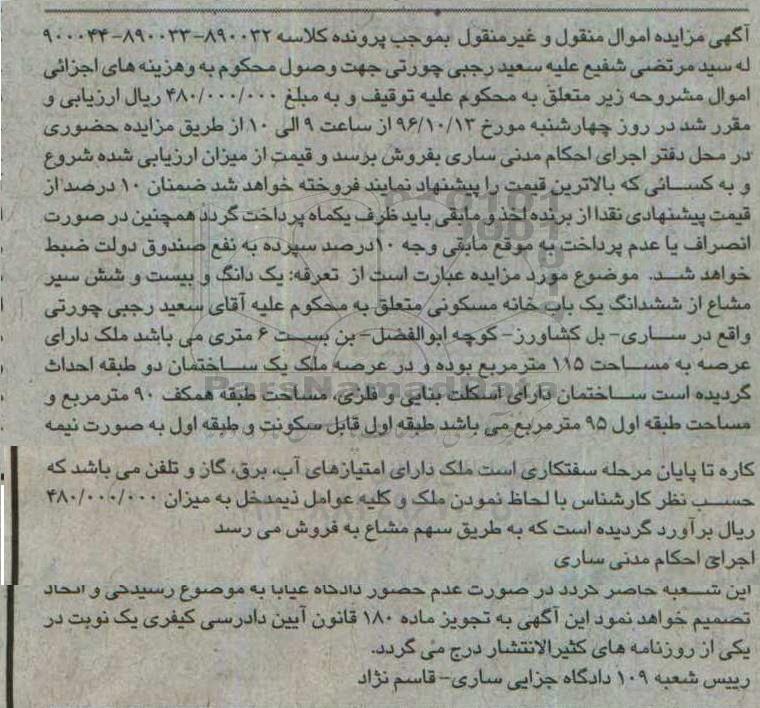 آگهی مزایده اموال منقول و غیرمنقول بموجب پرونده کلاسه ۸۹۰۰۳۲-۸۹۰۰۳۳-۹۰۰۰۴۴
له سید مرتضی شفیع علیه سعید رجبی چورتی جهت وصول محکوم به وهزینه های اجرائی
اموال مشروحه زیر متعلق به محکوم علیه توقیف و به مبلغ ۴۸۰/۰۰۰/۰۰۰ ریال ارزیابی و
مقرر شد در روز چهارشنبه مورخ ۹۶/۱۰/۱۳ از ساعت ۹ الی ۱۰ از طریق مزایده حضوری
در محل دفتر اجرای احکام مدنی ساری بفروش برسد و قیمت از میزان ارزیابی شده شروع
و به کسانی که بالاترین قیمت را پیشنهاد نمایند فروخته خواهد شد ضمنان ۱۰ درصد از
قیمت پیشنهادی نقدا از برنده اخذ و مابقی باید ظرف یکماه پرداخت گردد همچنین در صورت
انصراف یا عدم پرداخت به موقع مابقی وجه ۱۰درصد سپرده به نفع صندوق دولت ضبط
خواهد شد. موضوع مورد مزایده عبارت است از تعرفه: یک دانگ و بیست و شش سیر
مشاع از ششدانگ یک باب خانه مسکونی متعلق به محکوم علیه آقای سعید رجبی چورتی
واقع در ساری- بل کشاورز- کوچه ابوالفضل- بن بست ۶ متری می باشد ملک دارای
عرصه به مساحت ۱۱۵ مترمربع بوده و در عرصه ملک یک ساختمان دو طبقه احداث
گردیده است ساختمان دارای اسکلت بنایی و فلزی، مساحت طبقه همکف ۹۰ مترمربع و
مساحت طبقه اول ۹۵ مترمربع می باشد طبقه اول قابل سکونت و طبقه اول به صورت نیمه
کاره تا پایان مرحله سفتکاری است ملک دارای امتیازهای آب، برق، گاز و تلفن می باشد که
حسب نظر کارشناس با لحاظ نمودن ملک و کلیه عوامل ذیمدخل به میزان ۴۸۰/۰۰۰/۰۰۰
ریال برآورد گردیده است که به طریق سهم مشاع به فروش می رسد
اجرای احکام مدنی ساری
این شعبه حاضر گردد در صورت عدم حضور دادگاه غیابا به موضوع رسیدگی و اتخاذ
تصمیم خواهد نمود این آگهی به تجویز ماده ۱۸۰ قانون آیین دادرسی کیفری یک نوبت در
یکی از روزنامه های کثیرالانتشار درج می گردد.
رییس شعبه ۱۰۹ دادگاه جزایی ساری- قاسم نژاد
ParsNamadData